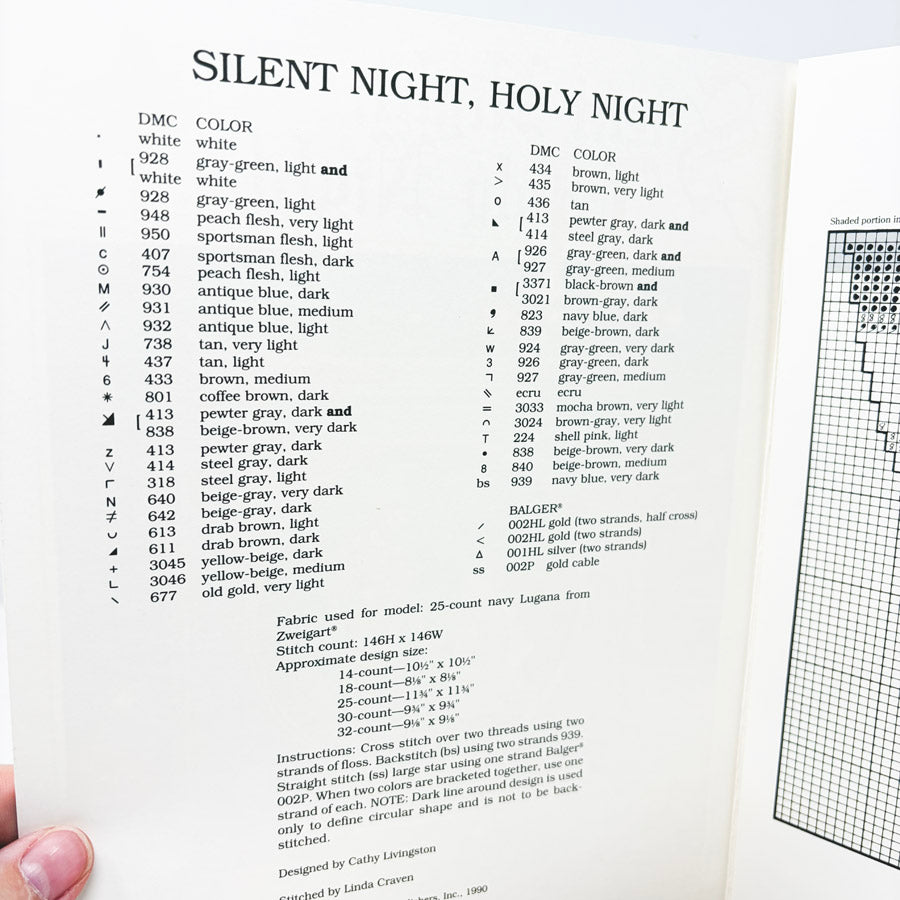 SILENT NIGHT, HOLY NIGHT
DMC COLOR
· white white
[ 928 gray-green, light and
white white
928 gray-green, light
– 948 peach flesh, very light
|| 950 sportsman flesh, light
C 407 sportsman flesh, dark
⊙ 754 peach flesh, light
M 930 antique blue, dark
⫽ 931 antique blue, medium
∧ 932 antique blue, light
J 738 tan, very light
4 437 tan, light
6 433 brown, medium
✳ 801 coffee brown, dark
◢ [ 413 pewter gray, dark and
838 beige-brown, very dark
z 413 pewter gray, dark
∨ 414 steel gray, dark
┌ 318 steel gray, light
N 640 beige-gray, very dark
≠ 642 beige-gray, dark
◡ 613 drab brown, light
◢ 611 drab brown, dark
+ 3045 yellow-beige, dark
∟ 3046 yellow-beige, medium
\ 677 old gold, very light
DMC COLOR
x 434 brown, light
> 435 brown, very light
o 436 tan
◣ [ 413 pewter gray, dark and
414 steel gray, dark
A [ 926 gray-green, dark and
927 gray-green, medium
■ [ 3371 black-brown and
3021 brown-gray, dark
❜ 823 navy blue, dark
839 beige-brown, dark
w 924 gray-green, very dark
3 926 gray-green, dark
¬ 927 gray-green, medium
⑊ ecru ecru
= 3033 mocha brown, very light
⌒ 3024 brown-gray, very light
T 224 shell pink, light
• 838 beige-brown, very dark
8 840 beige-brown, medium
bs 939 navy blue, very dark
BALGER®
/ 002HL gold (two strands, half cross)
< 002HL gold (two strands)
Δ 001HL silver (two strands)
ss 002P gold cable
Fabric used for model: 25-count navy Lugana from
Zweigart®
Stitch count: 146H x 146W
Approximate design size:
14-count—10½" x 10½"
18-count—8⅛" x 8⅛"
25-count—11¾" x 11¾"
30-count—9¾" x 9¾"
32-count—9⅛" x 9⅛"
Instructions: Cross stitch over two threads using two
strands of floss. Backstitch (bs) using two strands 939.
Straight stitch (ss) large star using one strand Balger®
002P. When two colors are bracketed together, use one
strand of each. NOTE: Dark line around design is used
only to define circular shape and is not to be back-
stitched.
Designed by Cathy Livingston
Stitched by Linda Craven
Inc., 1990
Shaded portion in